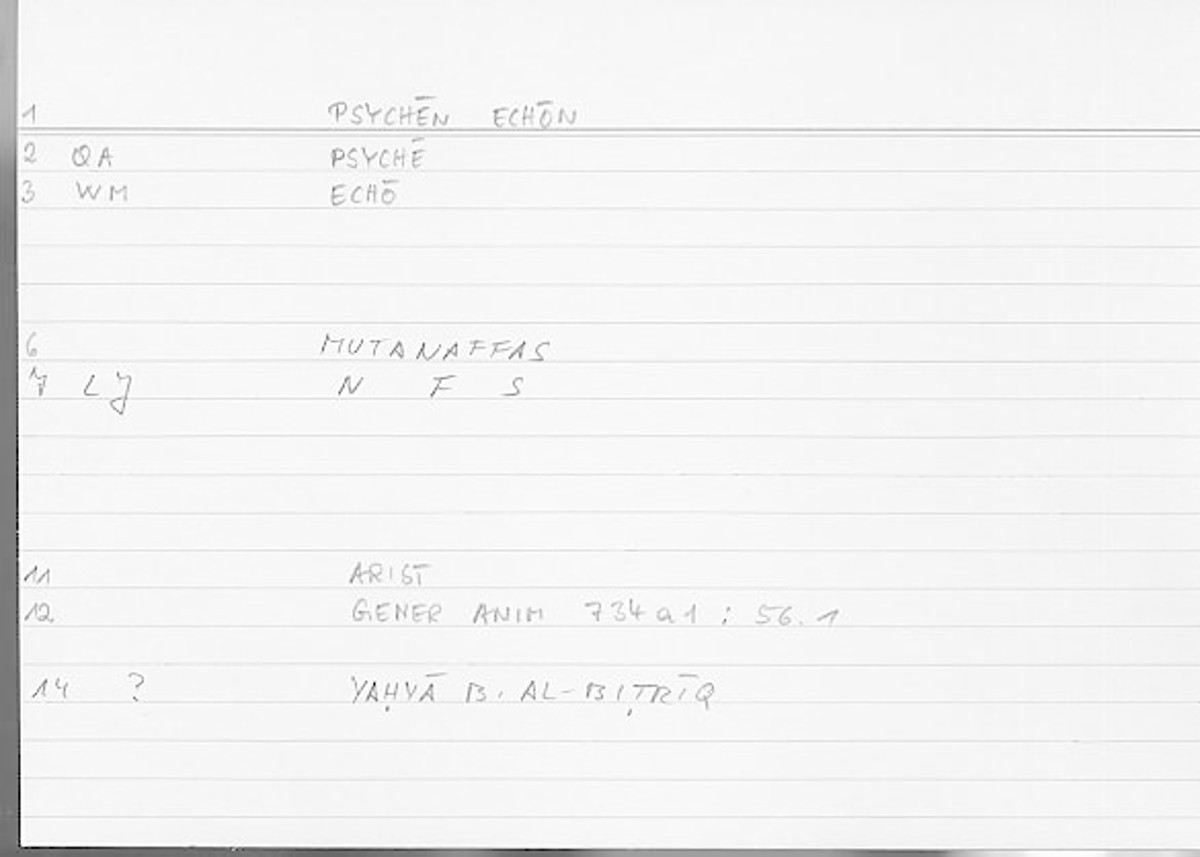 1 PSYCHĒN ECHŌN
2 QA PSYCHĒ
3 WM ECHŌ
6 MUTANAFFAS
7 LJ N F S
11 ARIST
12 GENER ANIM 734a1 ; 56.1
14 ? YAḤYĀ B. AL-BIṬRĪQ